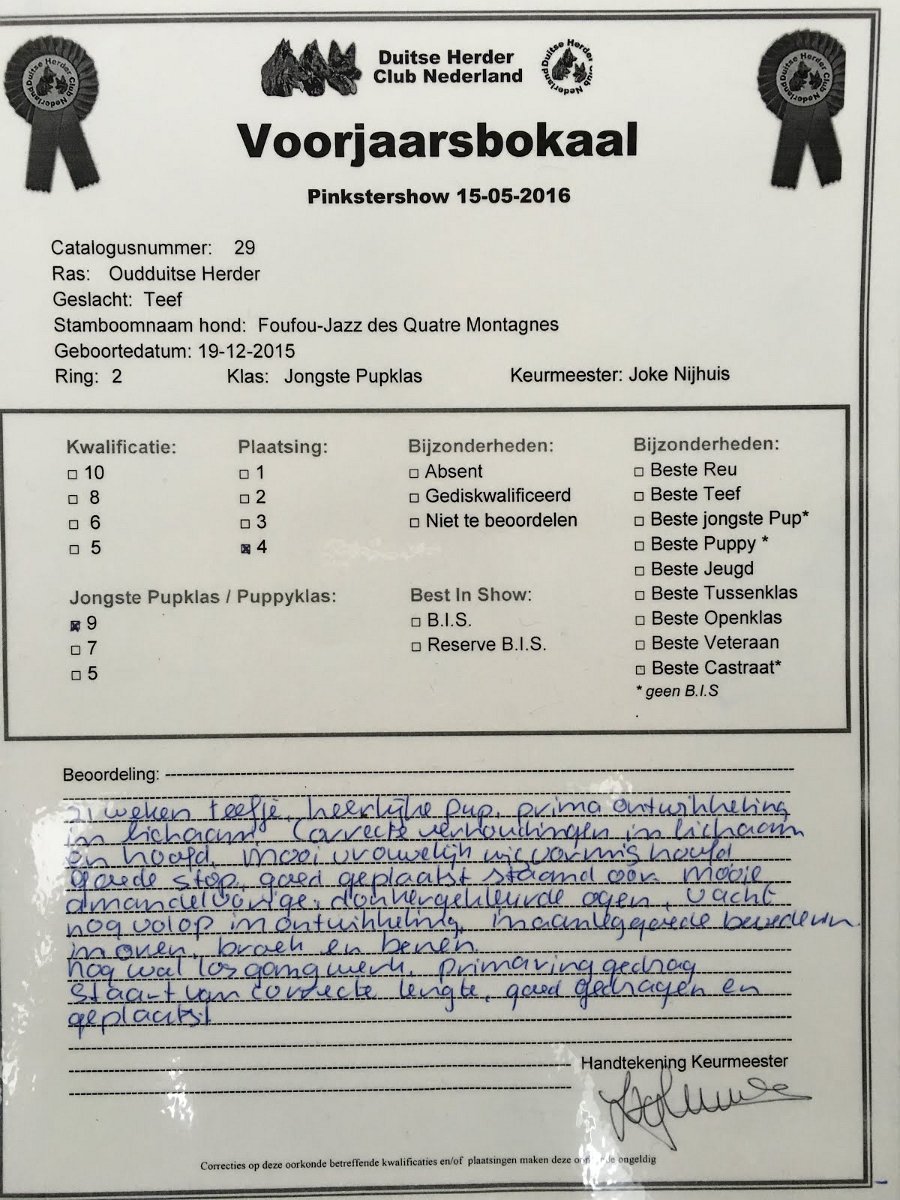 Duitse Herder
Club Nederland
Voorjaarsbokaal
Pinkstershow 15-05-2016
Catalogusnummer: 29
Ras: Oudduitse Herder
Geslacht: Teef
Stamboomnaam hond: Foufou-Jazz des Quatre Montagnes
Geboortedatum: 19-12-2015
Ring: 2 Klas: Jongste Pupklas Keurmeester: Joke Nijhuis
Kwalificatie: Plaatsing: Bijzonderheden: Bijzonderheden:
10 1 Absent Beste Reu
8 2 Gediskwalificeerd Beste Teef
6 3 Niet te beoordelen Beste jongste Pup*
5 4 Beste Puppy *
Beste Jeugd
Jongste Pupklas / Puppyklas: Best In Show: Beste Tussenklas
9 B.I.S. Beste Openklas
7 Reserve B.I.S. Beste Veteraan
5 Beste Castraat*
* geen B.I.S
Beoordeling:
21 weken teefje, heerlijke pup, prima ontwikkeling
in lichaam. Correcte verhoudingen in lichaam
en hoofd. Mooi vrouwelijk wigvormig hoofd
goede stop, goed geplaatst staand oor. mooie
amandelvorige, donkergekleurde ogen, vacht
nog volop in ontwikkeling, in aanleg goede bevedering
in oren, broek en benen.
nog wat los gangwerk. prima ringgedrag
Staart van correcte lengte, goed gedragen en
geplaatst
Handtekening Keurmeester
Correcties op deze oorkonde betreffende kwalificaties en/of plaatsingen maken deze ongeldig